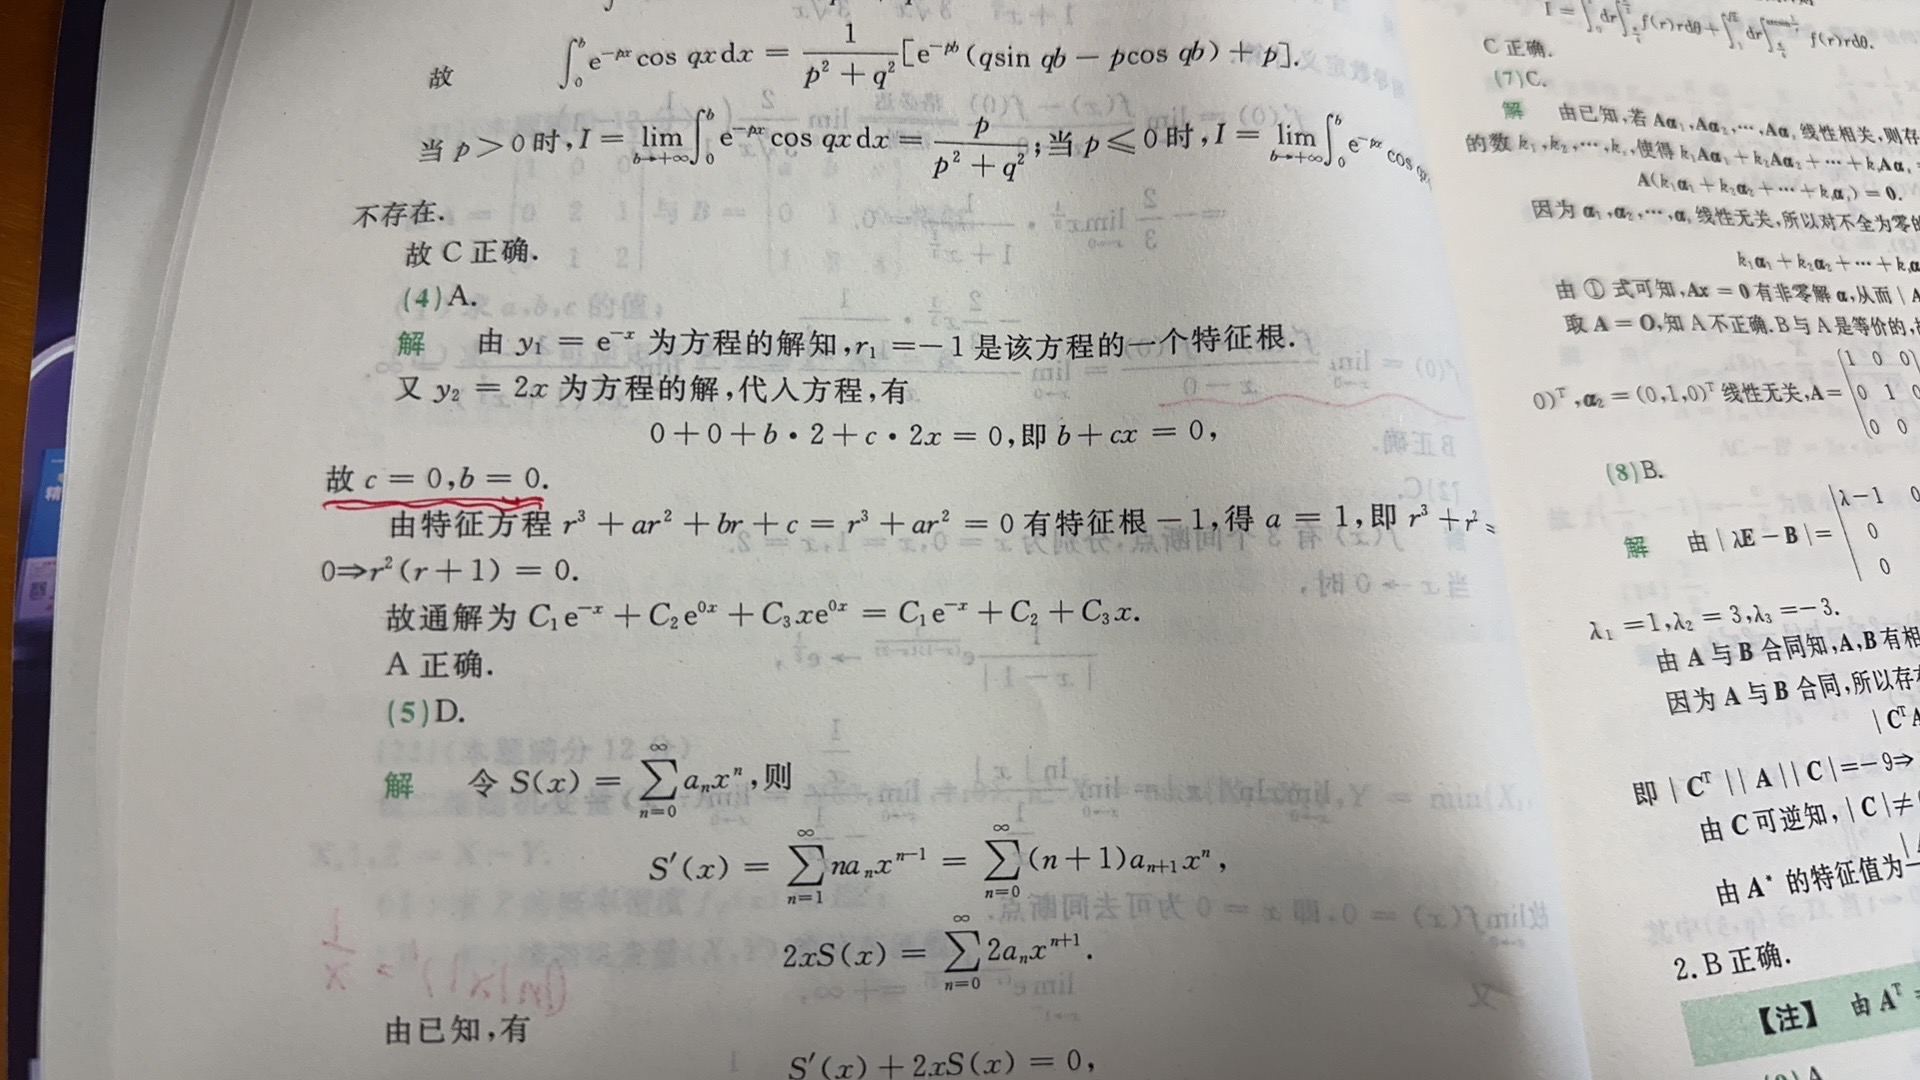 故 ∫₀ᵇ e⁻ᵖˣ cos qx dx = 1/(p² + q²) [e⁻ᵖᵇ (q sin qb − p cos qb) + p].
当 p > 0 时, I = lim_{b→+∞} ∫₀ᵇ e⁻ᵖˣ cos qx dx = p/(p² + q²); 当 p ⩽ 0 时, I = lim_{b→+∞} ∫₀ᵇ e⁻ᵖˣ cos
不存在.
故 C 正确.
(4) A.
解 由 y₁ = e⁻ˣ 为方程的解知, r₁ = −1 是该方程的一个特征根.
又 y₂ = 2x 为方程的解,代入方程,有
0 + 0 + b · 2 + c · 2x = 0, 即 b + cx = 0,
故 c = 0, b = 0.
由特征方程 r³ + ar² + br + c = r³ + ar² = 0 有特征根 −1, 得 a = 1, 即 r³ + r² =
0⇒r²(r + 1) = 0.
故通解为 C₁e⁻ˣ + C₂e⁰ˣ + C₃xe⁰ˣ = C₁e⁻ˣ + C₂ + C₃x.
A 正确.
(5) D.
解 令 S(x) = ∑_{n=0}^{∞} aₙxⁿ, 则
S′(x) = ∑_{n=1}^{∞} naₙxⁿ⁻¹ = ∑_{n=0}^{∞} (n + 1)aₙ₊₁xⁿ,
2xS(x) = ∑_{n=0}^{∞} 2aₙxⁿ⁺¹.
由已知,有
S′(x) + 2xS(x) = 0,
f(r)rdθ.
C 正确.
(7) C.
解 由已知,若 Aα₁, Aα₂, ⋯, Aαₛ 线性相关,则存
的数 k₁, k₂, ⋯, kₛ, 使得 k₁Aα₁ + k₂Aα₂ + ⋯ + kₛAαₛ
A(k₁α₁ + k₂α₂ + ⋯ + kₛαₛ) = 0.
因为 α₁, α₂, ⋯, αₛ 线性无关,所以对不全为零的
k₁α₁ + k₂α₂ + ⋯ + kₛα
由 ① 式可知, Ax = 0 有非零解 α, 从而 | A
取 A = O, 知 A 不正确. B 与 A 是等价的,
0)ᵀ, α₂ = (0,1,0)ᵀ 线性无关, A = (1 0 0 0 1 0 0
(8) B.
解 由 | λE − B | = | λ−1 0 0 0
λ₁ = 1, λ₂ = 3, λ₃ = −3.
由 A 与 B 合同知, A, B 有相
因为 A 与 B 合同,所以存在
| Cᵀ A
即 | Cᵀ || A || C | = −9⇒
由 C 可逆知, | C | ≠
由 A* 的特征值为
2. B 正确.
【注】 由 Aᵀ =
A